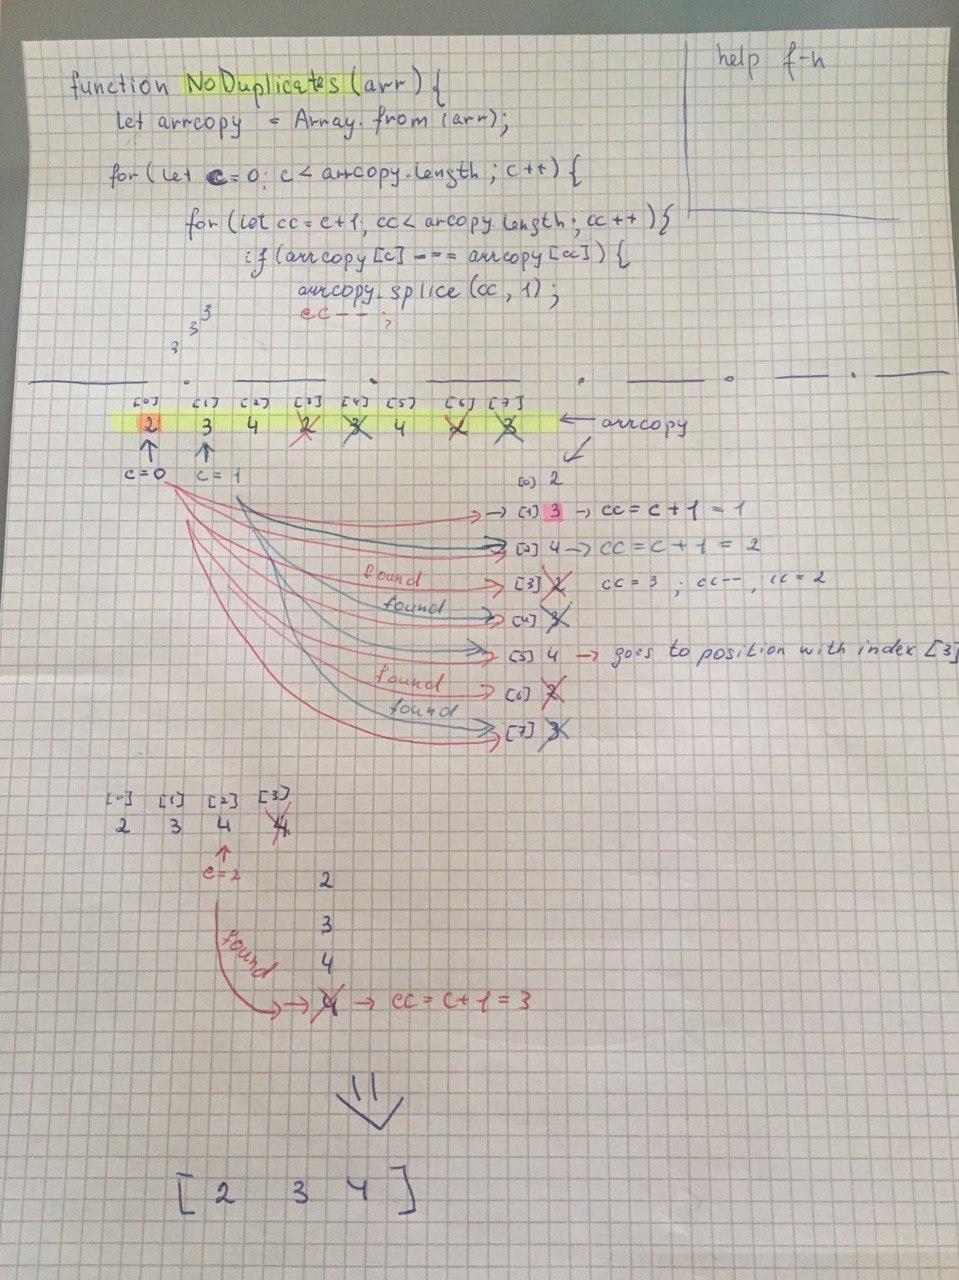 help f-n
function NoDuplicates (arr) {
let arrcopy = Array.from (arr);
for (let c = 0; c < arrcopy.length ; c++) {
for (let cc = c+1, cc < arcopy.length; cc ++) {
if (arrcopy [c] === arrcopy [cc]) {
arrcopy.splice (cc, 1) ;
cc-- ;
3
3
3
[0] [1] [2] [3] [4] [5] [6] [7]
2 3 4 2 3 4 2 3 ← arrcopy
c=0 c = 1
[0] 2
→ [1] 3 → cc = c + 1 = 1
[2] 4 → cc = c + 1 = 2
found [3] 2 cc = 3 ; cc-- , cc = 2
found [4] 3
[5] 4 → goes to position with index [3]
found [6] 2
found [7] 3
[0] [1] [2] [3]
2 3 4 4
↑
c=2
2
3
4
found
→ 4 → cc = c+1 = 3
[ 2 3 4 ]